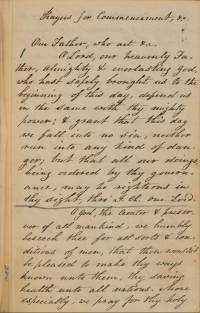 Prayers for Commencement, &c.
Our Father, who art &c.
O Lord, our heavenly Fa-
ther, almighty & everlasting God,
who hast safely brought us to the
beginning of this day, defend us
in the same with thy mighty
power; & grant that this day
we fall into no sin, neither
run into any kind of dan-
ger; but that all our doings,
being ordered by thy govern-
ance, may be righteous in
thy sight, thro' J. Ch. our Lord.
O God, the Creator & preser-
ver of all mankind, we humbly
beseech thee for all sorts & con-
ditions of men, that thou wouldst
be pleased to make thy ways
known unto them, thy saving
health unto all nations. More
especially, we pray for thy holy